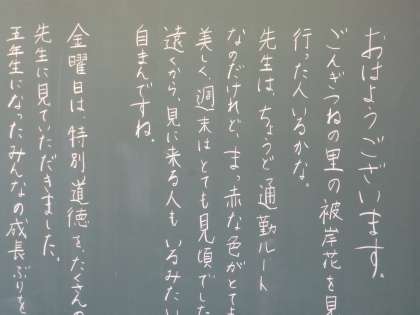 おはようございます。
ごんぎつねの里の彼岸花を見
行った人いるかな。
先生は、ちょうど通勤ルート
なのだけれど、まっ赤な色がとてよ
美しく、週末はとても見頃でした
遠くから、見に来る人もいるみたい
自まんですね。
金曜日は、特別道徳を、たくさんの
先生に見ていただきました。
五年生になったみんなの成長ぶりを